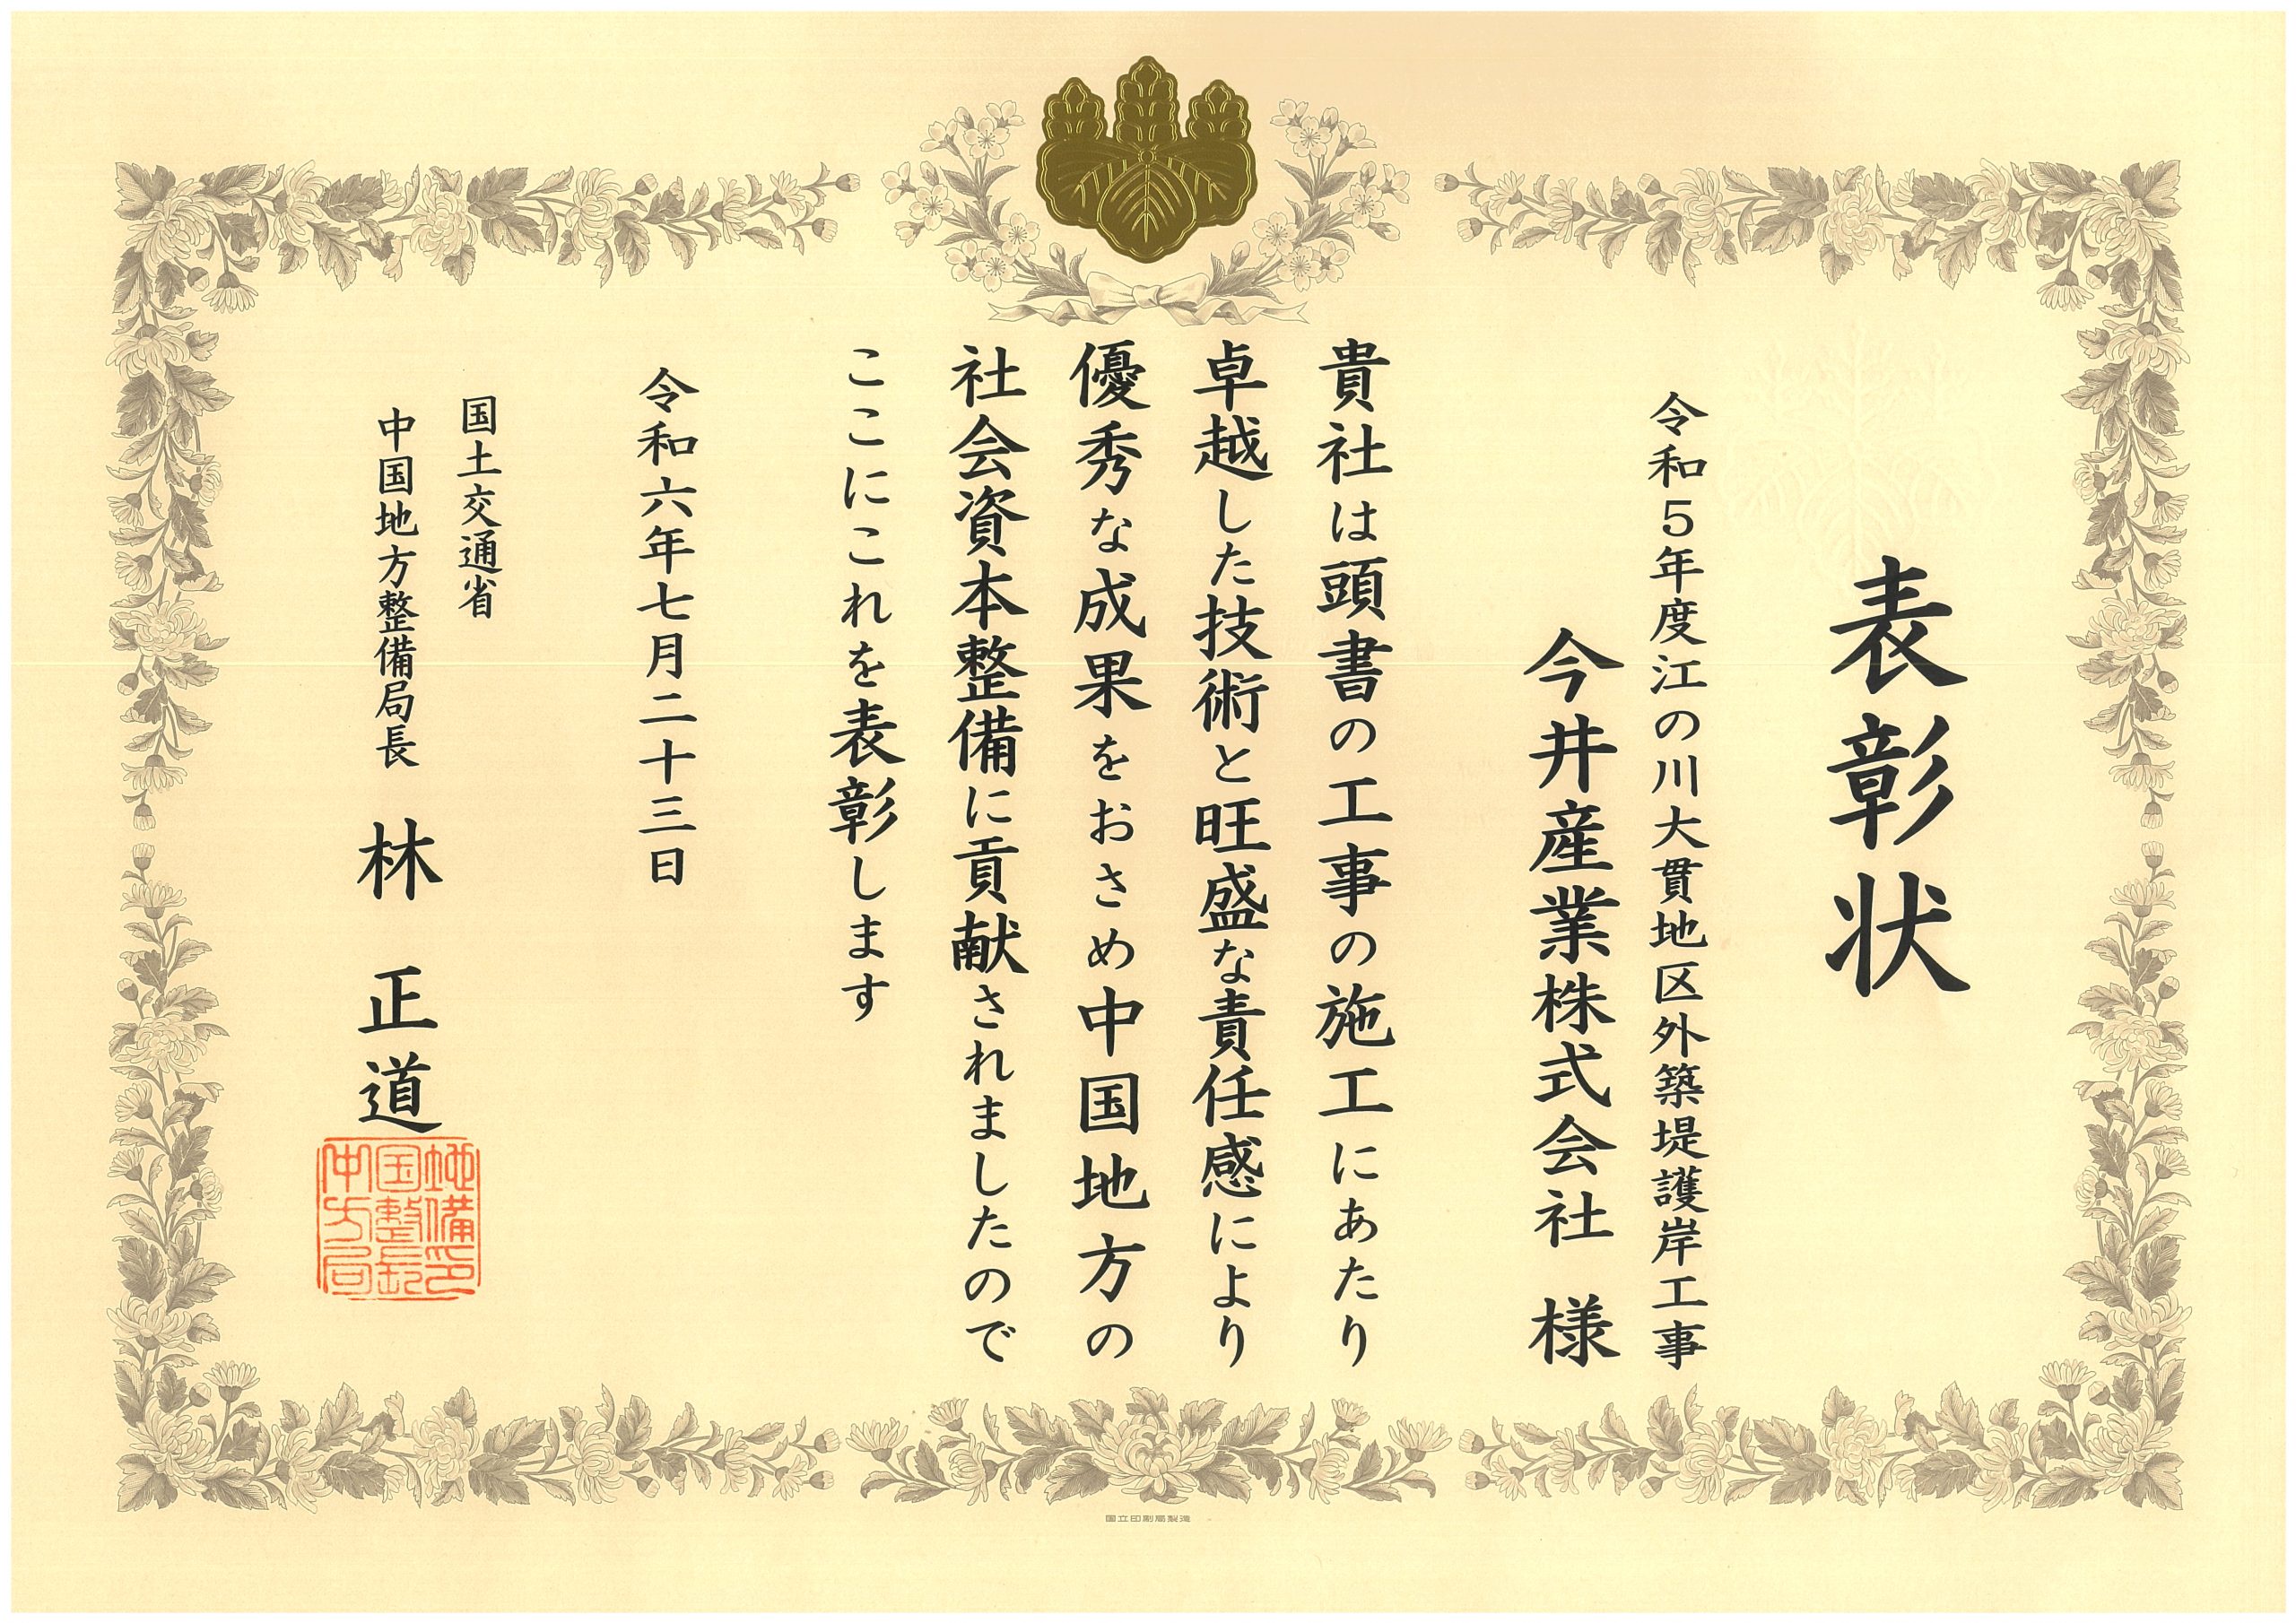 表彰状
令和５年度江の川大貫地区外築堤護岸工事
今井産業株式会社 様
貴社は頭書の工事の施工にあたり
卓越した技術と旺盛な責任感により
優秀な成果をおさめ中国地方の
社会資本整備に貢献されましたので
ここにこれを表彰します
令和六年七月二十三日
国土交通省
中国地方整備局長 林 正道
中国地方整備局長印
国立印刷局製造